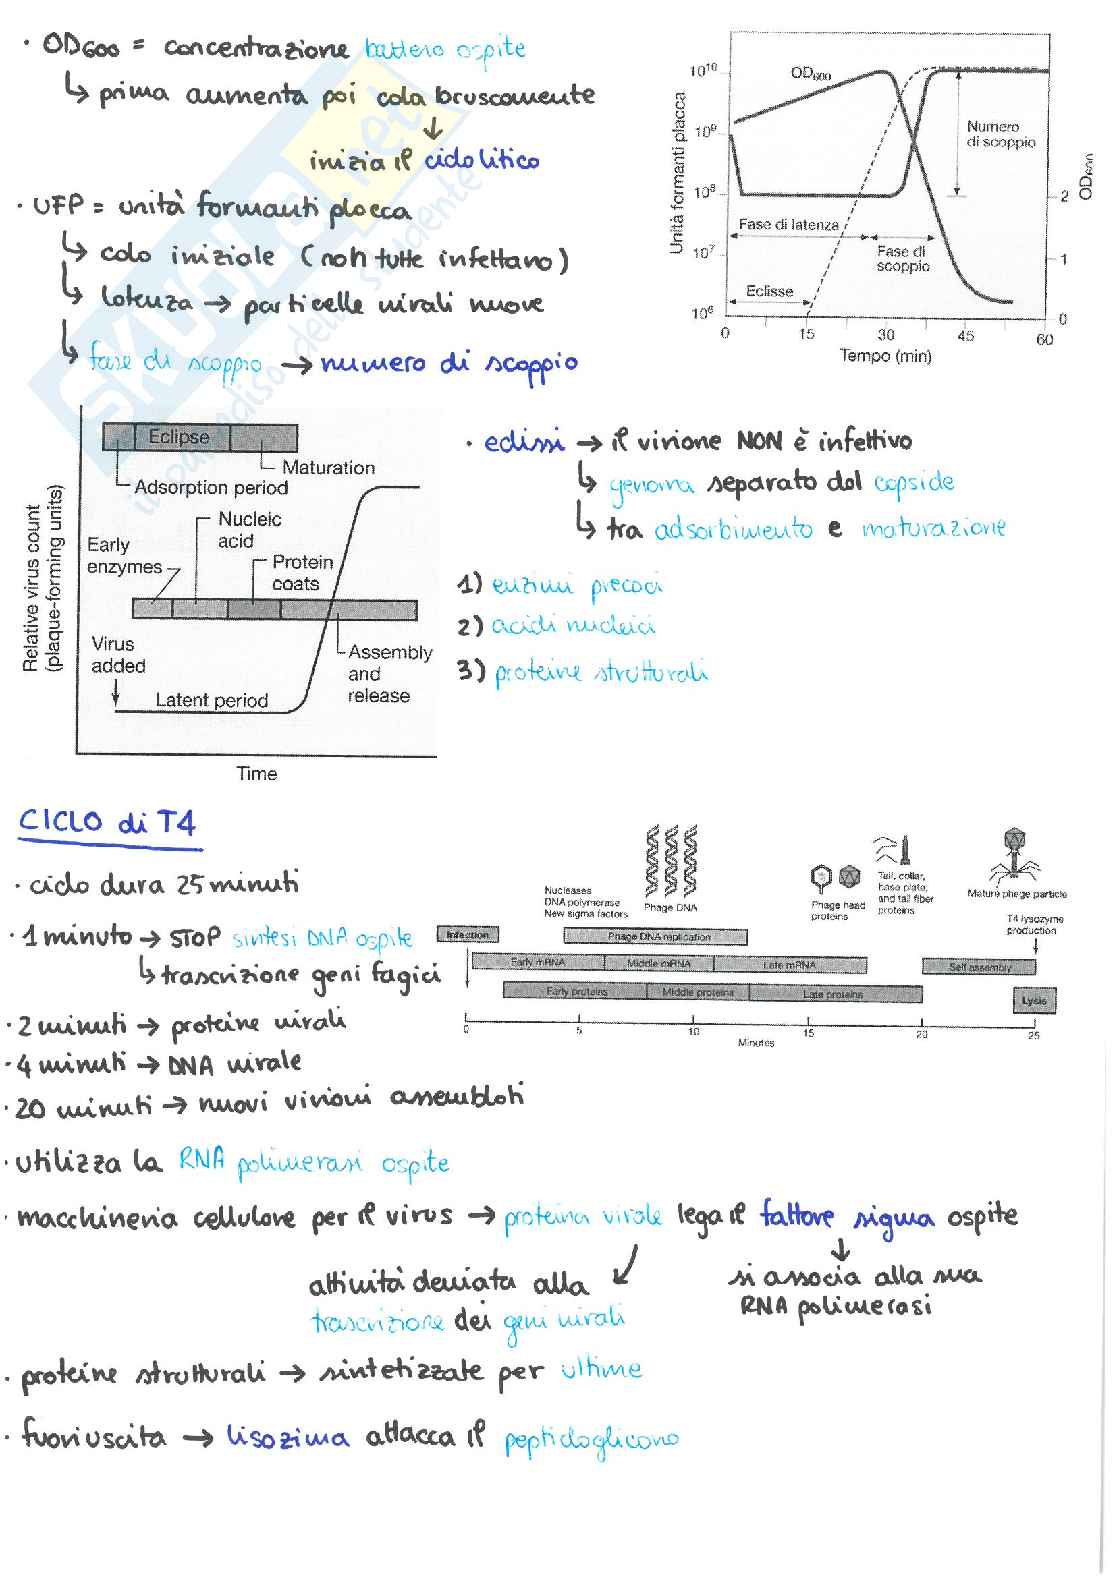 · OD600 = concentrazione battero ospite
↳ prima aumenta poi cala bruscamente
↓
inizia il ciclo litico
· UFP = unità formanti placca
↳ calo iniziale (non tutte infettano)
↳ latenza → particelle virali nuove
↳ fase di scoppio → numero di scoppio
SKUOLA.net
il paradiso dello studente
Unità formanti placca
10¹⁰
10⁹
10⁸
10⁷
10⁶
OD600
Numero
di scoppio
Fase di latenza
Fase di
scoppio
Eclisse
2
1
0
OD600
0 15 30 45 60
Tempo (min)
Relative virus count
(plaque-forming units)
Eclipse
Maturation
Adsorption period
Nucleic
acid
Early
enzymes
Protein
coats
Virus
added
Assembly
and
release
Latent period
Time
· eclissi → il virione NON è infettivo
↳ genoma separato dal capside
↳ tra adsorbimento e maturazione
1) enzimi precoci
2) acidi nucleici
3) proteine strutturali
CICLO di T4
· ciclo dura 25 minuti
· 1 minuto → STOP sintesi DNA ospite
↳ trascrizione geni fagici
· 2 minuti → proteine virali
· 4 minuti → DNA virale
· 20 minuti → nuovi virioni assemblati
Nucleases
DNA polymerase
New sigma factors
Phage DNA
Phage head
proteins
Tail, collar,
base plate,
and tail fiber
proteins
Mature phage particle
T4 lysozyme
production
Infection
Phage DNA replication
Early mRNA
Middle mRNA
Late mRNA
Self assembly
Early proteins
Middle proteins
Late proteins
Lysis
0 5 10 15 20 25
Minutes
· utilizza la RNA polimerasi ospite
· macchineria cellulare per il virus → proteina virale lega il fattore sigma ospite
attività deviata alla
trascrizione dei geni virali
si associa alla sua
RNA polimerasi
· proteine strutturali → sintetizzate per ultime
· fuoriuscita → lisozima attacca il peptidoglicano